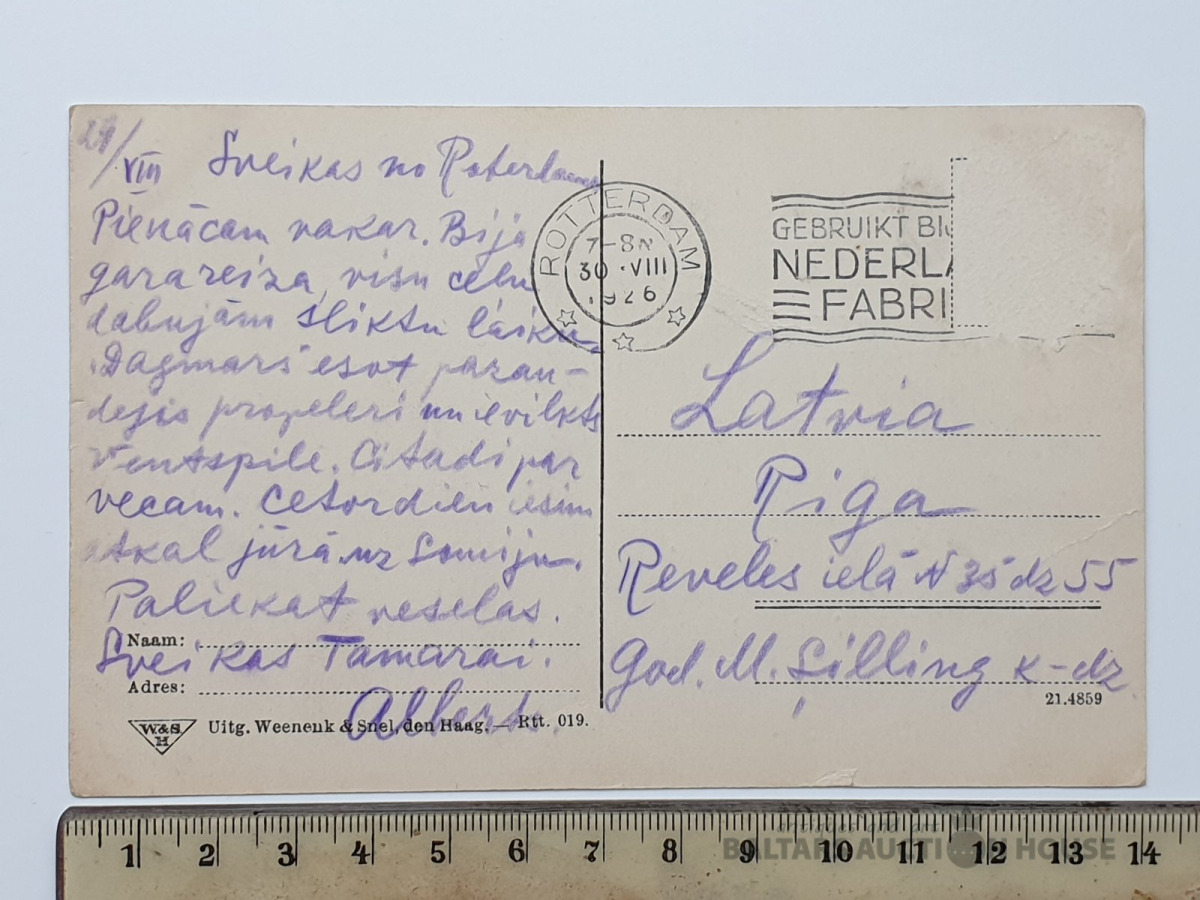 29/VIII Sveikas no Roterdamas
Pienācam vakar. Bija
gara reiza, visu ceļu
dabujām sliktu laiku.
„Dagmars" esot paran-
dejis propeleri un ievilkts
Ventspilē. Citadi par
vecam. Cetordien iesim
atkal jūrā uz Somiju.
Paliekat veselas.
Naam:
Sveikas Tamarai.
Adres:
Alberts.
W.&S.
H
Uitg. Weenenk & Snel, den Haag. — Rtt. 019.
ROTTERDAM
7-8N
30 VIII
1926
GEBRUIKT BIJ
NEDERLA
FABRI
Latvia
Riga
Reveles ielā N 35 dz 55
God. M. Silling k-dz
21.4859
1 2 3 4 5 6 7 8 9 10 11 12 13 14
BALTARS AUCTION HOUSE